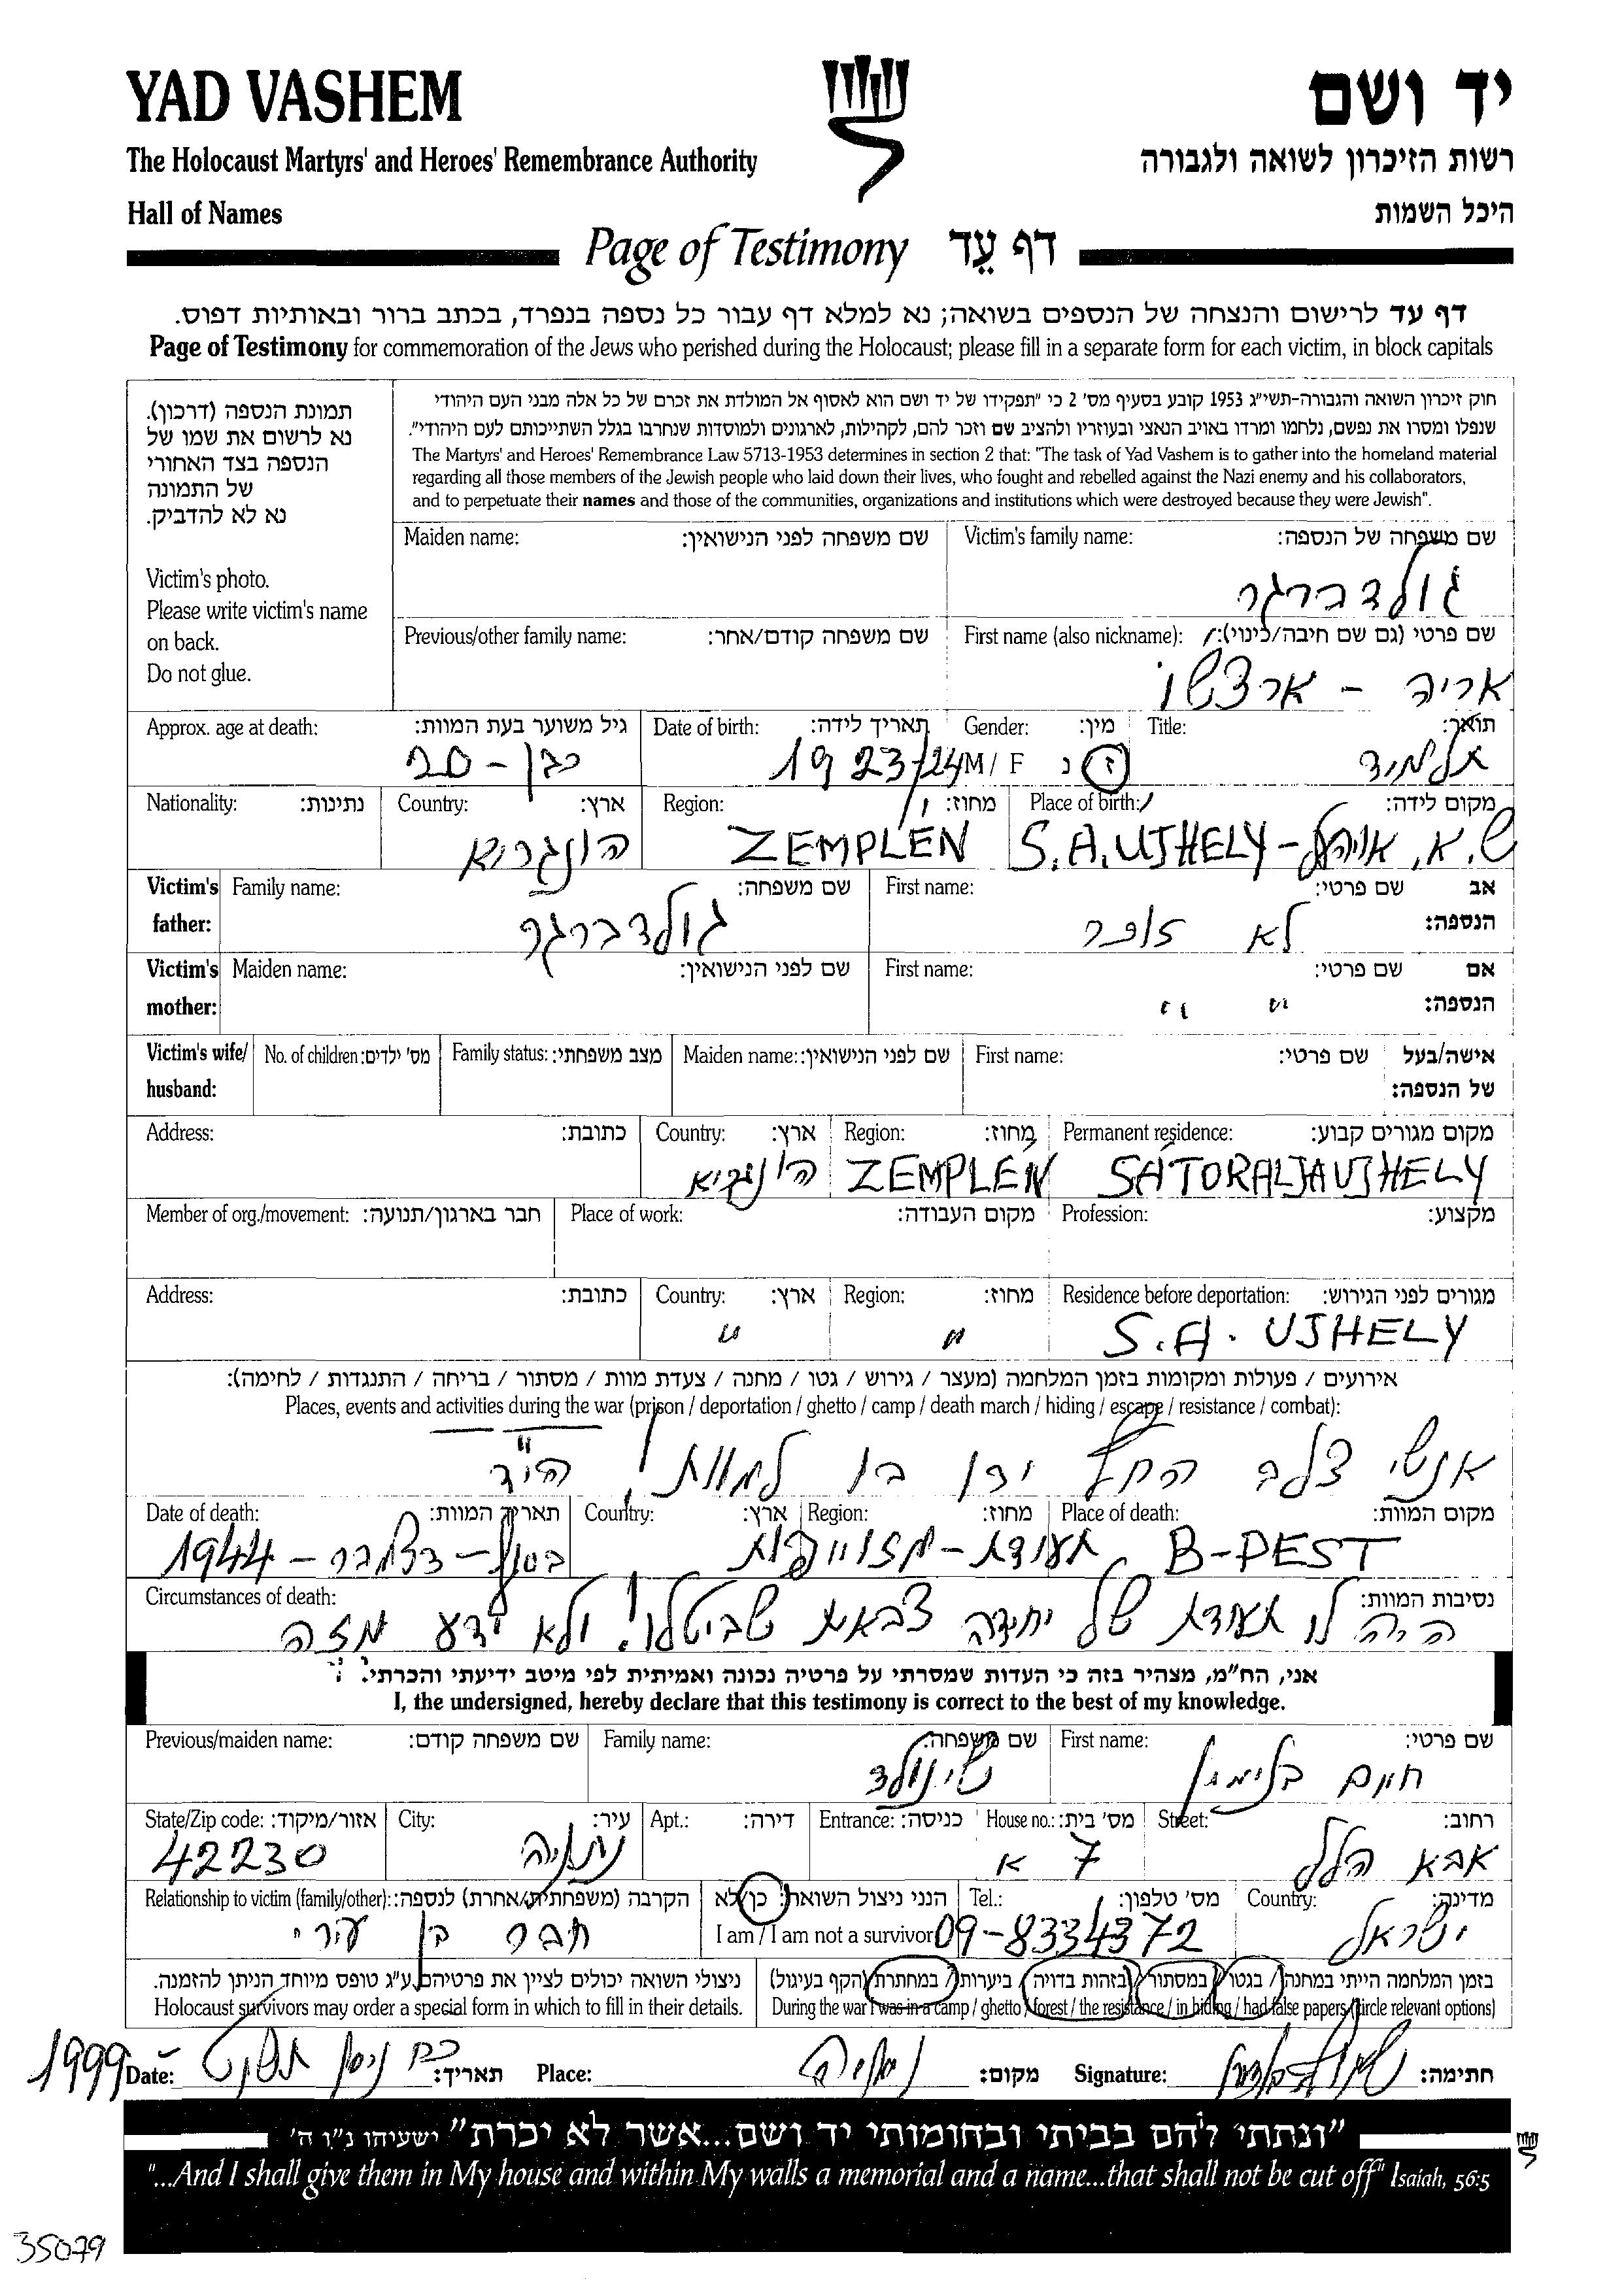 YAD VASHEM
יד ושם
The Holocaust Martyrs' and Heroes' Remembrance Authority
רשות הזיכרון לשואה ולגבורה
Hall of Names
היכל השמות
Page of Testimony דף עֵד
דף עד לרישום והנצחה של הנספים בשואה; נא למלא דף עבור כל נספה בנפרד, בכתב ברור ובאותיות דפוס.
Page of Testimony for commemoration of the Jews who perished during the Holocaust; please fill in a separate form for each victim, in block capitals
תמונת הנספה (דרכון).
נא לרשום את שמו של
הנספה בצד האחורי
של התמונה
נא לא להדביק.
Victim's photo.
Please write victim's name
on back.
Do not glue.
חוק זיכרון השואה והגבורה-תשי"ג 1953 קובע בסעיף מס' 2 כי "תפקידו של יד ושם הוא לאסוף אל המולדת את זכרם של כל אלה מבני העם היהודי
שנפלו ומסרו את נפשם, נלחמו ומרדו באויב הנאצי ובעוזריו ולהציב שם וזכר להם, לקהילות, לארגונים ולמוסדות שנחרבו בגלל השתייכותם לעם היהודי".
The Martyrs' and Heroes' Remembrance Law 5713-1953 determines in section 2 that: "The task of Yad Vashem is to gather into the homeland material
regarding all those members of the Jewish people who laid down their lives, who fought and rebelled against the Nazi enemy and his collaborators,
and to perpetuate their names and those of the communities, organizations and institutions which were destroyed because they were Jewish".
Maiden name: שם משפחה לפני הנישואין: Victim's family name: שם משפחה של הנספה:
גולדברגר
Previous/other family name: שם משפחה קודם/אחר: First name (also nickname): שם פרטי (גם שם חיבה/כינוי):
אריה -
Approx. age at death: גיל משוער בעת המוות: Date of birth: תאריך לידה: Gender: מין: Title: תואר:
כבן - 20 1923/24 M / F ז נ תלמיד
Nationality: נתינות: Country: ארץ: Region: מחוז: Place of birth: מקום לידה:
הונגריא ZEMPLÉN S.A.UJHELY - ש.א. אויהל
Victim's father: Family name: שם משפחה: First name: שם פרטי: אב הנספה:
גולדברגר לא זוכר
Victim's mother: Maiden name: שם לפני הנישואין: First name: שם פרטי: אם הנספה:
" "
Victim's wife/ husband: No. of children: מס' ילדים: Family status: מצב משפחתי: Maiden name: שם לפני הנישואין: First name: שם פרטי: אישה/בעל של הנספה:
Address: כתובת: Country: ארץ: Region: מחוז: Permanent residence: מקום מגורים קבוע:
הונגריא ZEMPLÉN SÁTORALJAUJHELY
Member of org./movement: חבר בארגון/תנועה: Place of work: מקום העבודה: Profession: מקצוע:
Address: כתובת: Country: ארץ: Region: מחוז: Residence before deportation: מגורים לפני הגירוש:
" " S.A. UJHELY
אירועים / פעולות ומקומות בזמן המלחמה (מעצר / גירוש / גטו / מחנה / צעדת מוות / מסתור / בריחה / התנגדות / לחימה):
Places, events and activities during the war (prison / deportation / ghetto / camp / death march / hiding / escape / resistance / combat):
אנשי צלב החץ ירו בו למוות! הי"ד
Date of death: תאריך המוות: Country: ארץ: Region: מחוז: Place of death: מקום המוות:
בסוף - דצמבר - 1944 תעודות - מזוייפות B-PEST
Circumstances of death: נסיבות המוות:
היה לו תעודת של יחידה צבאית שביטלו! ולא ידע מזה
אני, הח"מ, מצהיר בזה כי העדות שמסרתי על פרטיה נכונה ואמיתית לפי מיטב ידיעתי והכרתי.
I, the undersigned, hereby declare that this testimony is correct to the best of my knowledge.
Previous/maiden name: שם משפחה קודם: Family name: שם משפחה: First name: שם פרטי:
שינולד חיים בנימין
State/Zip code: אזור/מיקוד: City: עיר: Apt.: דירה: Entrance: כניסה: House no.: מס' בית: Street: רחוב:
42230 נתניה 7 א אבא הלל
Relationship to victim (family/other): הקרבה (משפחתית/אחרת) לנספה: הנני ניצול השואה: כן/לא Tel.: מס' טלפון: Country: מדינה:
חבר בן עירי I am / I am not a survivor 09-8334372 ישראל
ניצולי השואה יכולים לציין את פרטיהם ע"ג טופס מיוחד הניתן להזמנה. בזמן המלחמה הייתי במחנה/ בגטו/ במסתור/ בזהות בדויה/ ביערות/ במחתרת (הקף בעיגול)
Holocaust survivors may order a special form in which to fill in their details. During the war I was in a camp / ghetto / forest / the resistance / in hiding / had false papers (circle relevant options)
1999 Date: ניסן תשנ"ט תאריך: Place: נתניה מקום: Signature: חתימה:
"ונתתי להם בביתי ובחומותי יד ושם...אשר לא יכרת" ישעיהו נ"ו ה'
"...And I shall give them in My house and within My walls a memorial and a name...that shall not be cut off" Isaiah, 56:5
35079